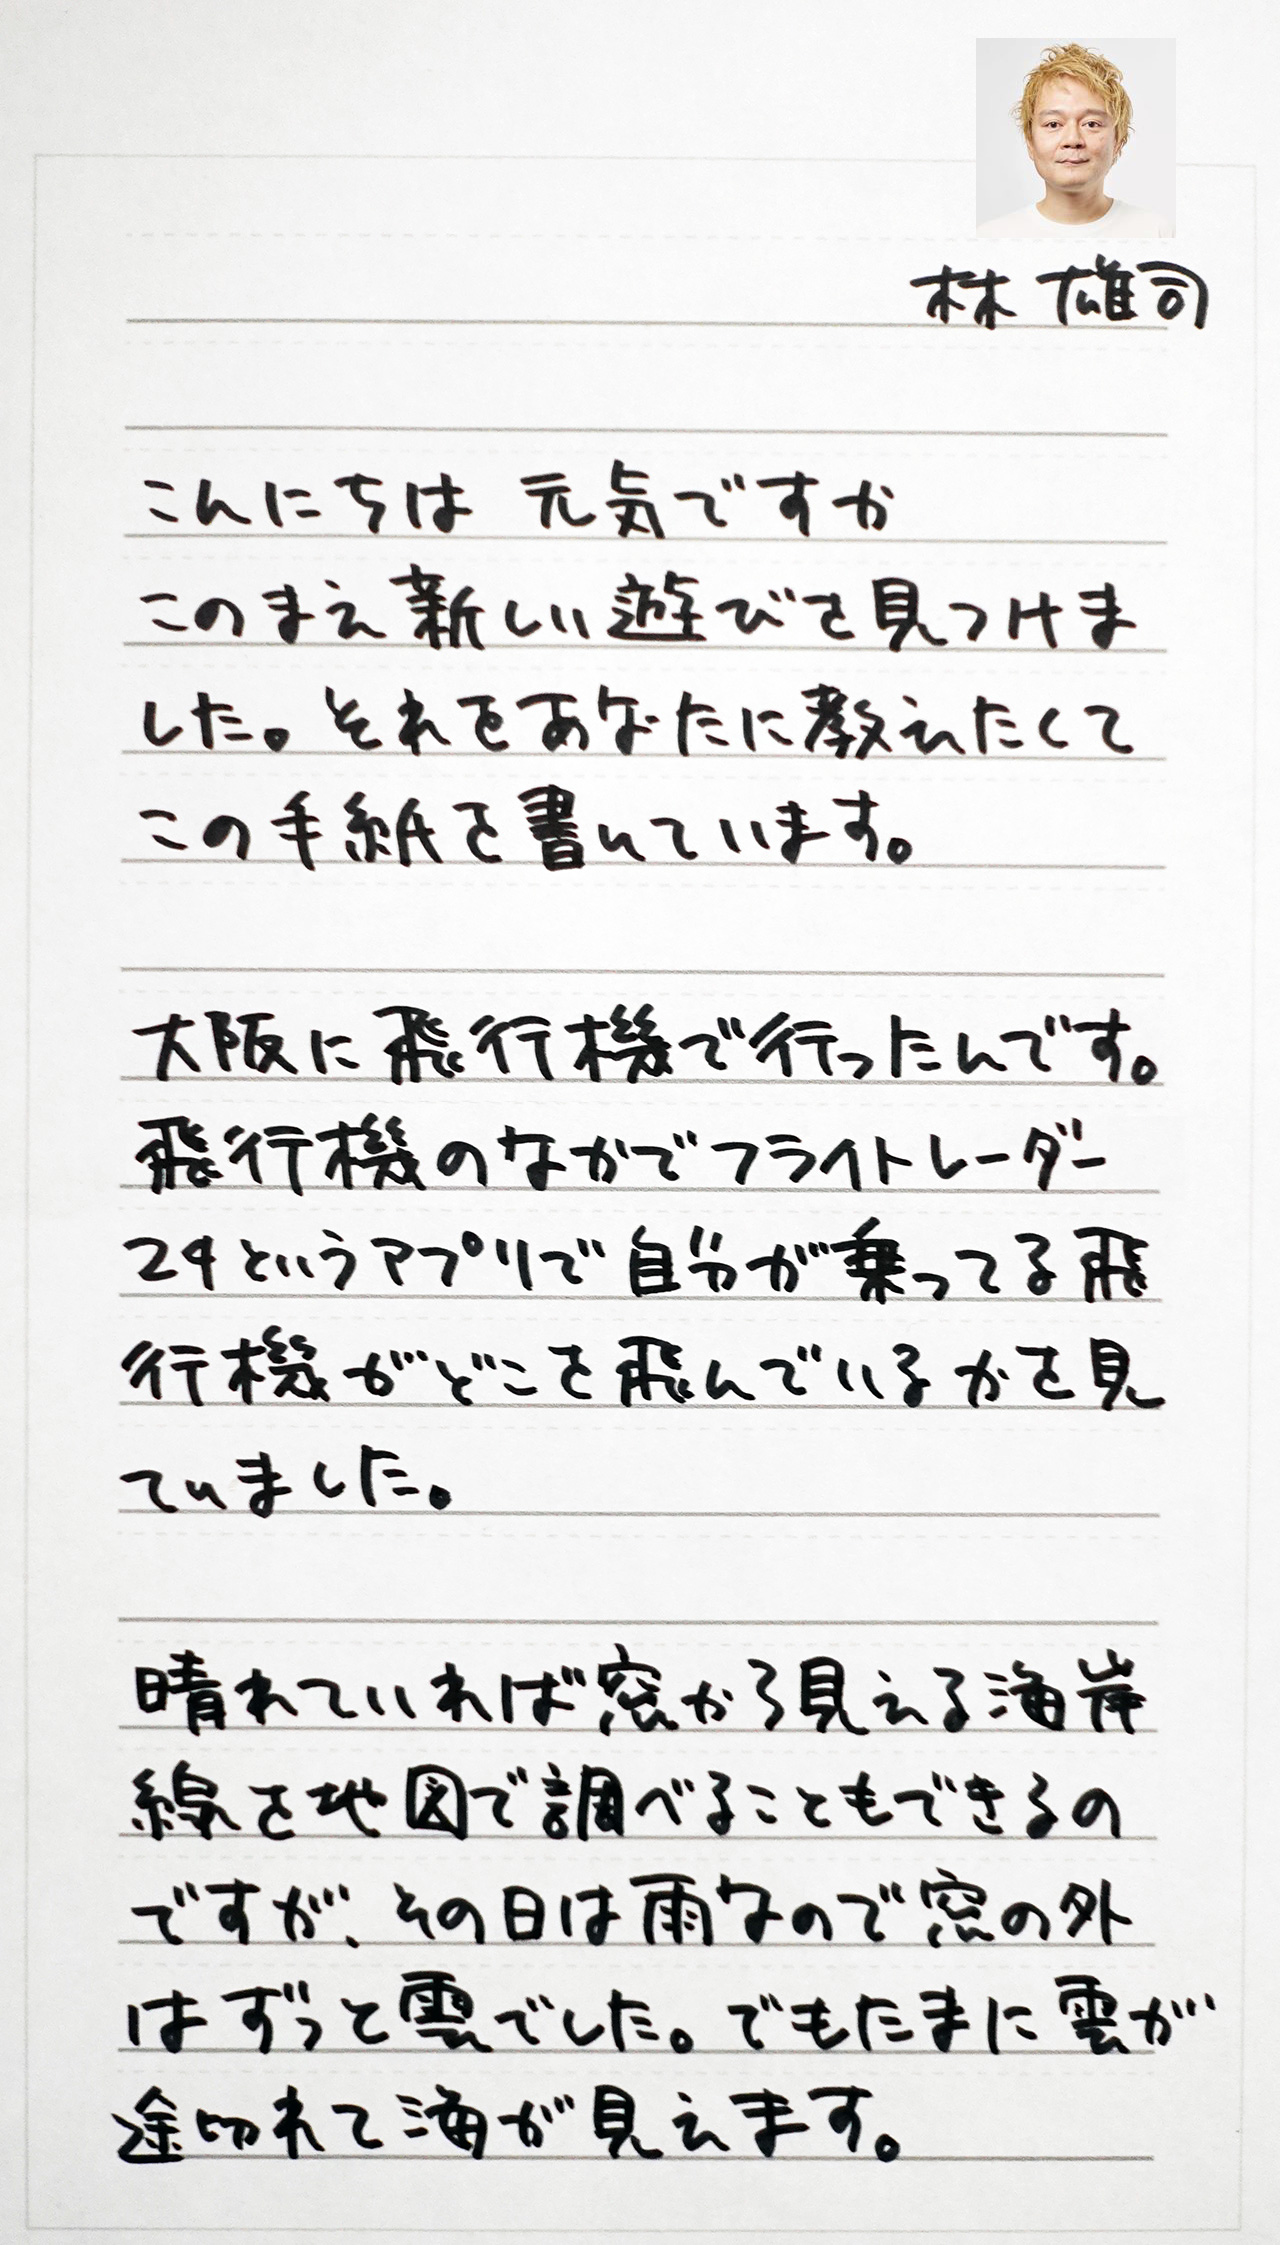 林 雄司
こんにちは 元気ですか
このまえ新しい遊びを見つけま
した。それをあなたに教えたくて
この手紙を書いています。
大阪に飛行機で行ったんです。
飛行機のなかでフライトレーダー
24というアプリで自分が乗ってる飛
行機がどこを飛んでいるかを見
ていました。
晴れていれば窓から見える海岸
線を地図で調べることもできるの
ですが、その日は雨なので窓の外
はずっと雲でした。でもたまに雲が
途切れて海が見えます。